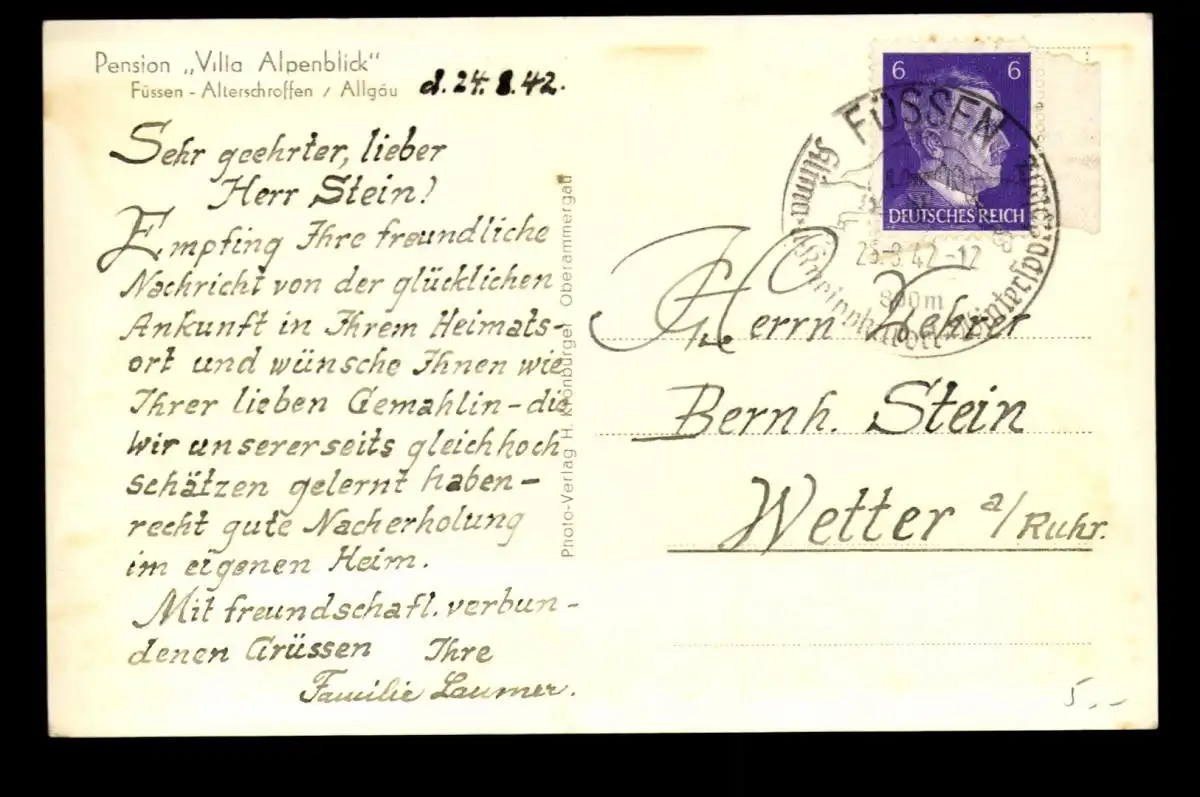 Pension „Villa Alpenblick"
Füssen - Alterschroffen / Allgäu
d. 24. 8. 42.
Sehr geehrter, lieber
Herr Stein!
Empfing Ihre freundliche
Nachricht von der glücklichen
Ankunft in Ihrem Heimats-
ort und wünsche Ihnen wie
Ihrer lieben Gemahlin - die
wir unsererseits gleich hoch
schätzen gelernt haben -
recht gute Nacherholung
im eigenen Heim.
Mit freundschaftl. verbun-
denen Grüssen Ihre
Familie Laumer.
Photo-Verlag H. Kronburger Oberammergau
6 6
DEUTSCHES REICH
FÜSSEN
Klima
Wintersport
25.8.42-12
800m
Herrn Lehrer
Bernh. Stein
Wetter a/Ruhr.
5.-